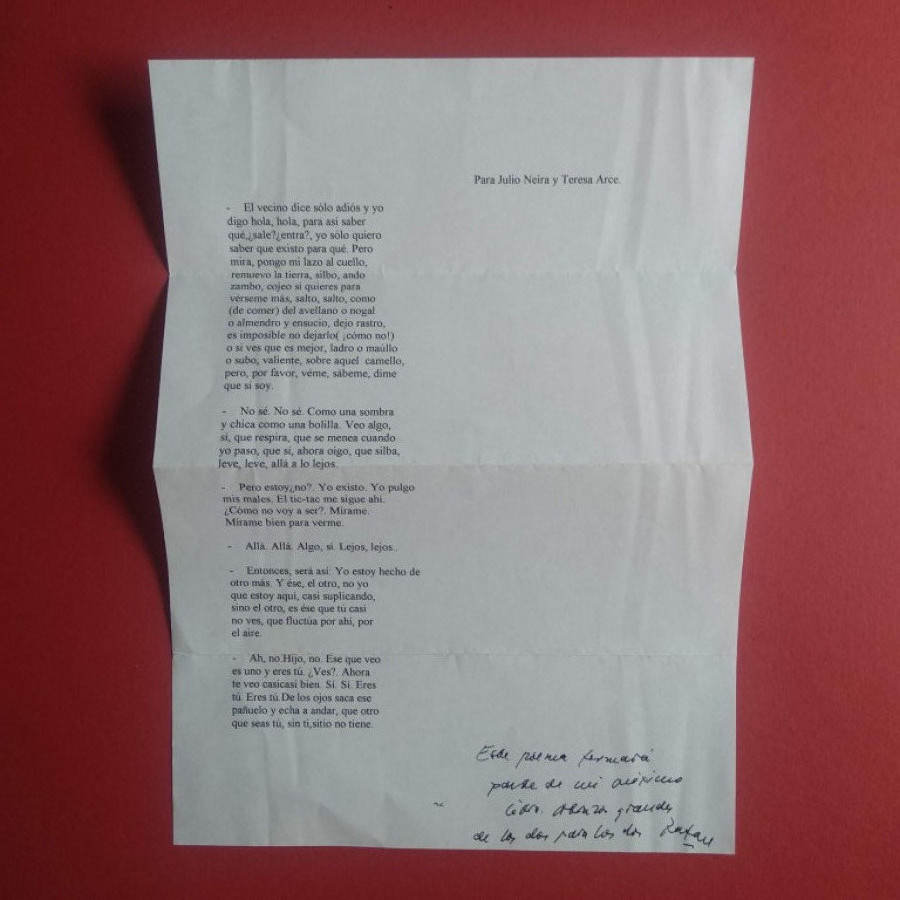 Para Julio Neira y Teresa Arce.
- El vecino dice sólo adiós y yo
digo hola, hola, para así saber
qué,¿sale?¿entra?, yo sólo quiero
saber que existo para qué. Pero
mira, pongo mi lazo al cuello,
remuevo la tierra, silbo, ando
zambo, cojeo si quieres para
vérseme más, salto, salto, como
(de comer) del avellano o nogal
o almendro y ensucio, dejo rastro,
es imposible no dejarlo( ¡cómo no!)
o si ves que es mejor, ladro o maúllo
o subo, valiente, sobre aquel camello,
pero, por favor, véme, sábeme, dime
que sí soy.
- No sé. No sé. Como una sombra
y chica como una bolilla. Veo algo,
sí, que respira, que se menea cuando
yo paso, que sí, ahora oigo, que silba,
leve, leve, allá a lo lejos.
- Pero estoy¿no?. Yo existo. Yo pulgo
mis males. El tic-tac me sigue ahí.
¿Cómo no voy a ser?. Mírame.
Mírame bien para verme.
- Allá. Allá. Algo, sí. Lejos, lejos..
- Entonces, será así: Yo estoy hecho de
otro más. Y ése, el otro, no yo
que estoy aquí, casi suplicando,
sino el otro, es ése que tú casi
no ves, que fluctúa por ahí, por
el aire.
- Ah, no.Hijo, no. Ese que veo
es uno y eres tú. ¿Ves?. Ahora
te veo casicasi bien. Sí. Sí. Eres
tú. Eres tú.De los ojos saca ese
pañuelo y echa a andar, que otro
que seas tú, sin ti,sitio no tiene.
Este poema formará
parte de mi próximo
libro. Abrazos grandes
de los dos para los dos Rafael